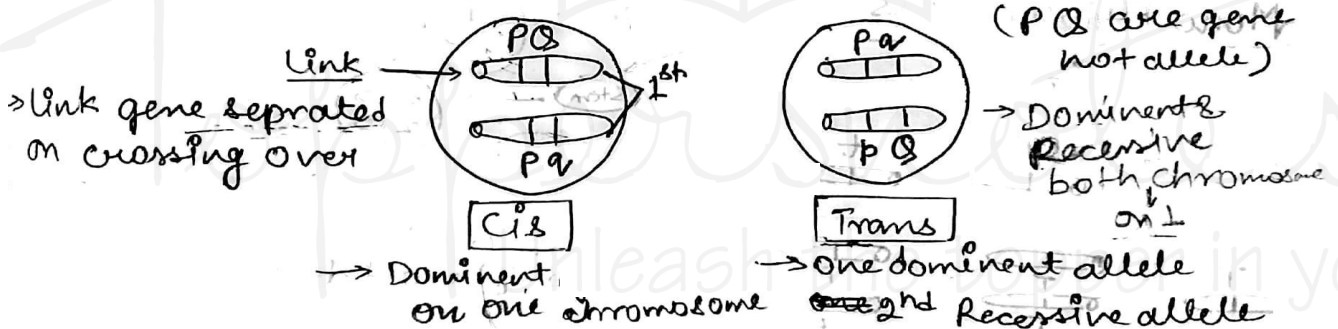 Link
> Link gene seprated
on crossing over
PQ
1st
pq
Cis
→ Dominent
on one chromosome
Pq
pQ
Trans
→ One dominent allele
2nd Recessive allele
(PQ are gene
not allele)
→ Dominent &
Recessive
both chromosome
on 1